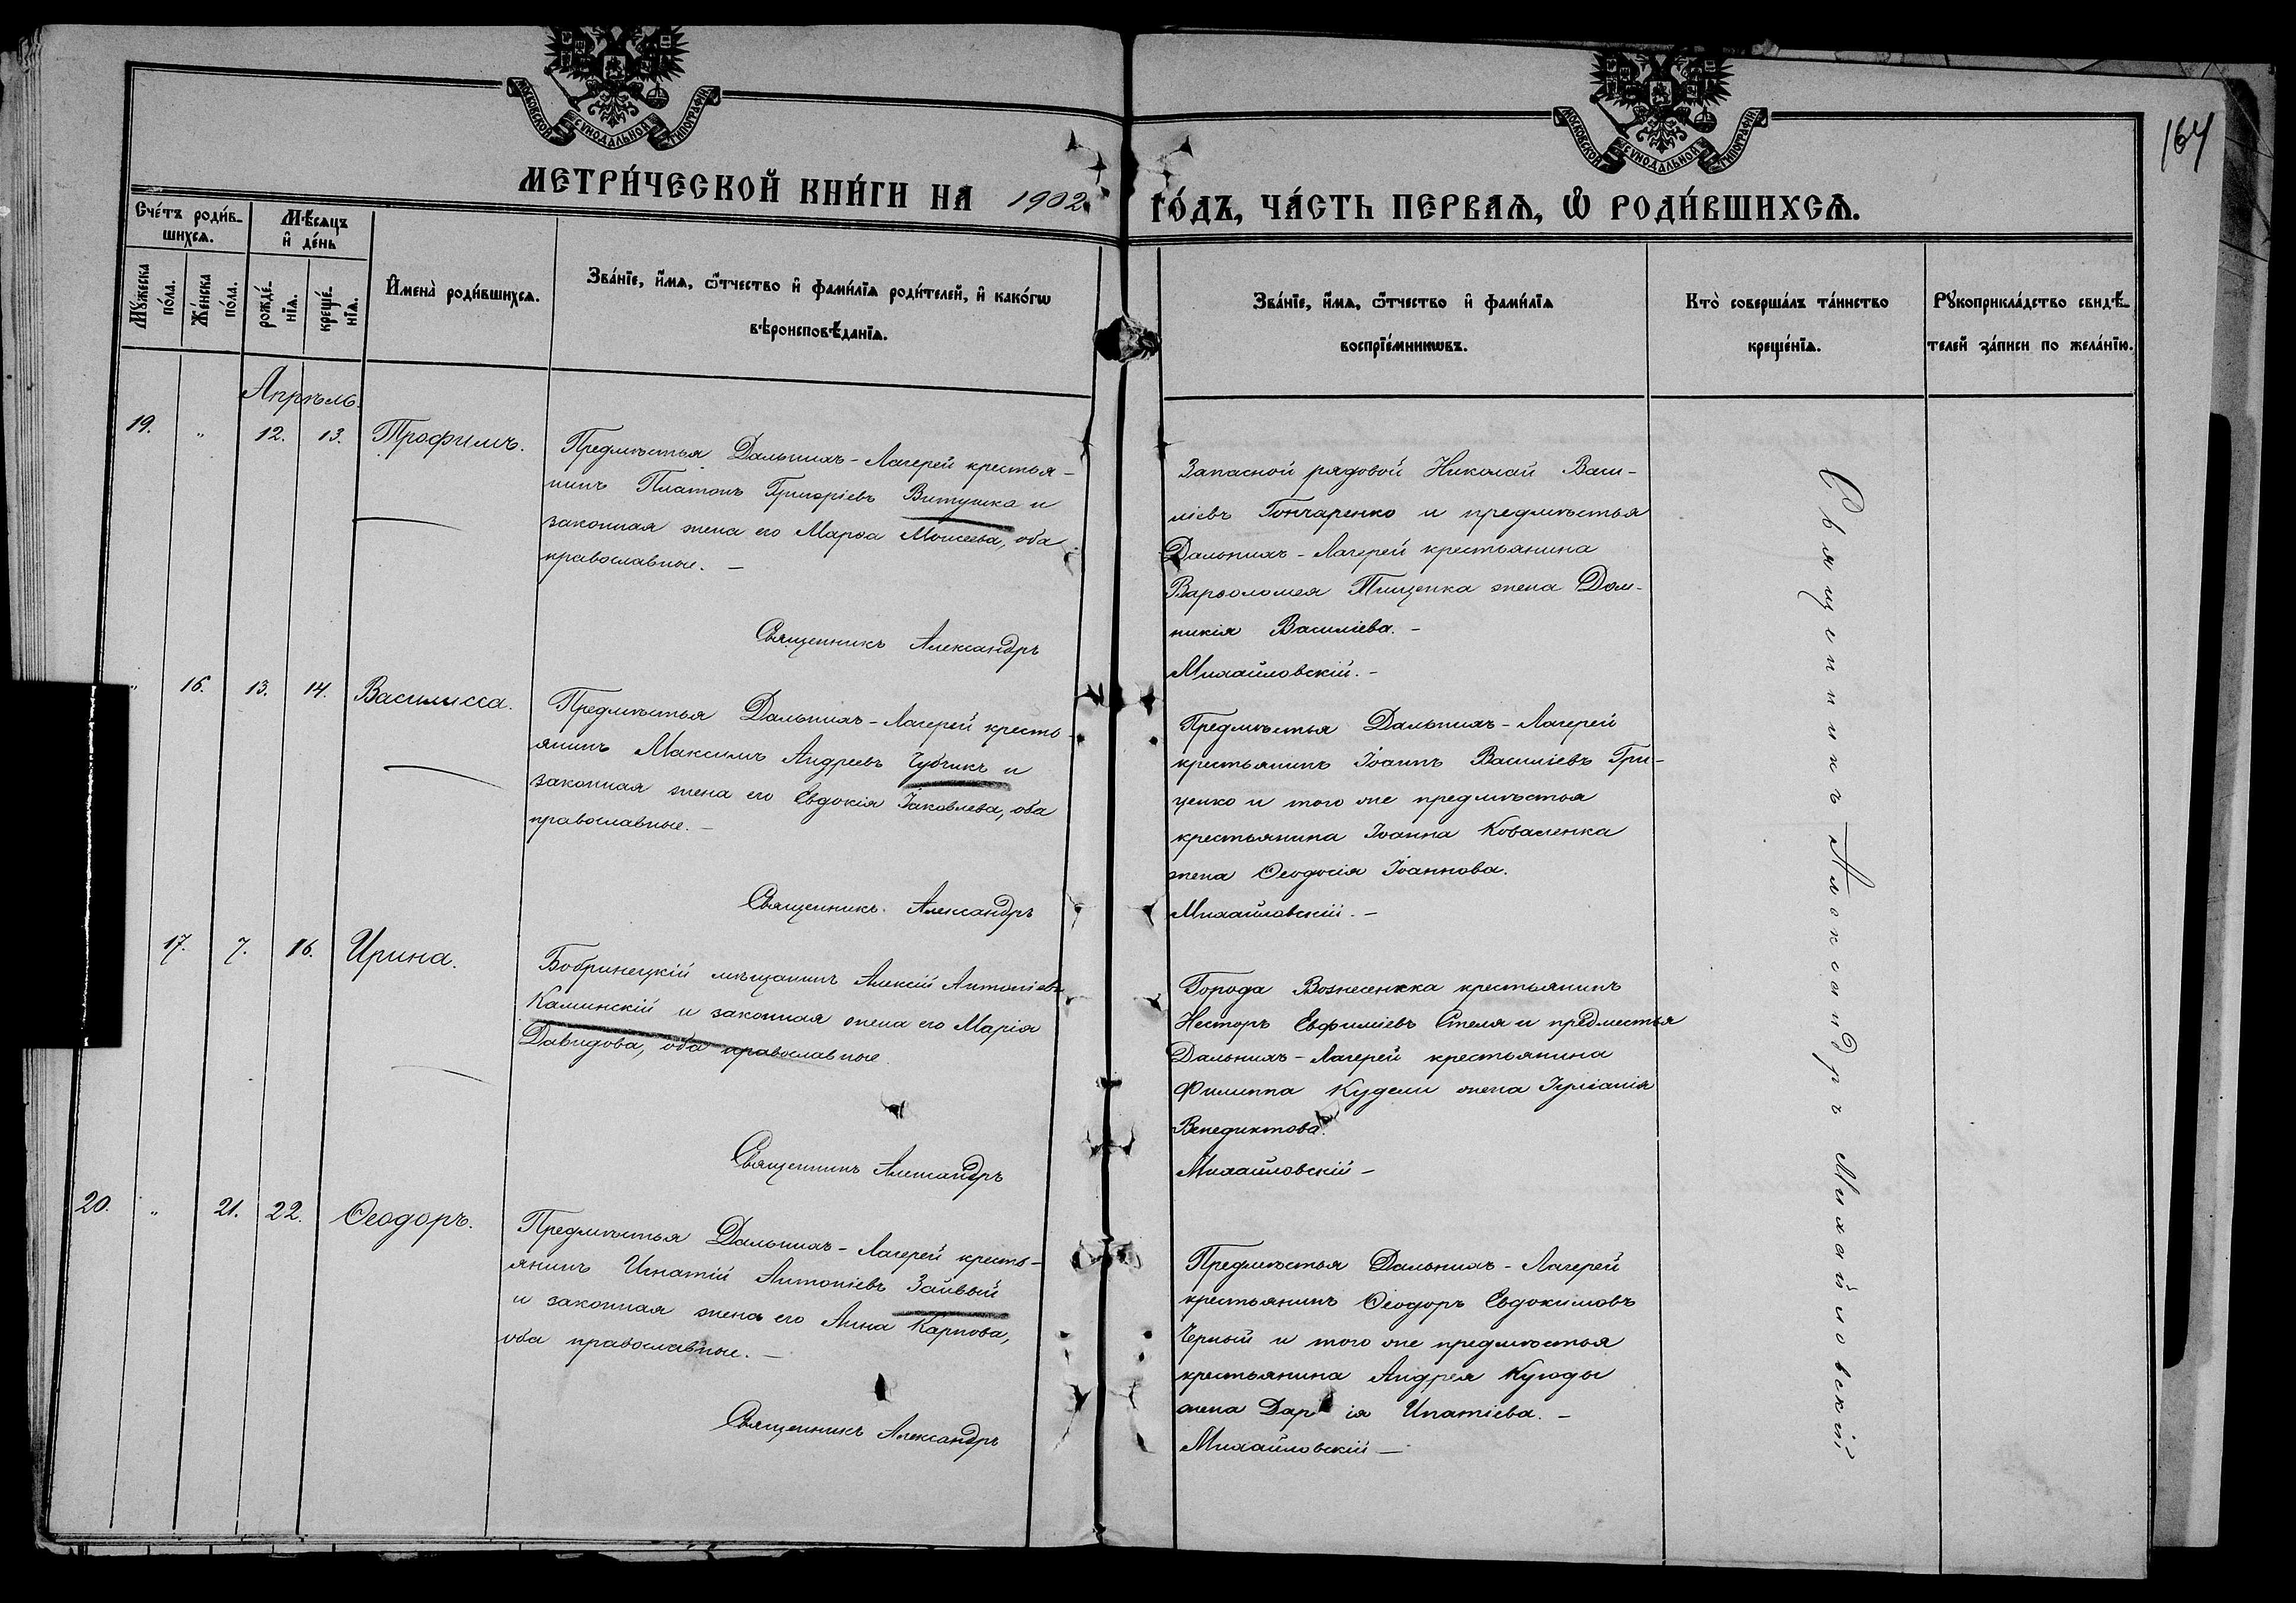 МОСКОВСКОЙ СѴНОДАЛЬНОЙ ТИПОГРАФІИ
МОСКОВСКОЙ СѴНОДАЛЬНОЙ ТИПОГРАФІИ
164
МЕТРИ́ЧЕСКОЙ КНИ́ГИ НА 1902 ГО́ДЪ, ЧА́СТЬ ПЕРВАѦ, Ѡ РОДИ́ВШИХСѦ.
Сче́тъ роди́в-
шихсѧ.
Мѣ́сяцъ
и де́нь
Мꙋжеска
по́ла.
Же́нска
по́ла.
рожде́-
нїѧ.
креще́-
нїѧ.
Имена̀ роди́вшихсѧ.
Зва́нїе, и́мѧ, ѻ́тчество и фами́лїѧ роди́телей, и како́гѡ
вѣроисповѣ́данїѧ.
Зва́нїе, и́мѧ, ѻ́тчество и фами́лїѧ
воспрїе́мникѡвъ.
Кто̀ соверша́лъ та́инство
креще́нїѧ.
Рꙋкоприкла́дство свидѣ́-
телей за́писи по жела́нїю.
Апрѣль.
19. " 12. 13. Трофимъ.
Предмѣстья Дальнихъ-Лагерей крестья-
нинъ Платонъ Григоріевъ Витушка и
законная жена его Марѳа Моисеева, оба
православные. —
Священникъ Александръ
Запасной рядовой Николай Васи-
ліевъ Гончаренко и предмѣстья
Дальнихъ-Лагерей крестьянина
Варѳоломея Тищенка жена Дом-
никія Василіева. —
Михайловскій. —
" 16. 13. 14. Василисса.
Предмѣстья Дальнихъ-Лагерей кресть-
янинъ Максимъ Андреевъ Чубчикъ и
законная жена его Евдокія Іаковлева, оба
православные. —
Священникъ Александръ
Предмѣстья Дальнихъ-Лагерей
крестьянинъ Іоаннъ Василіевъ Гри-
ценко и того же предмѣстья
крестьянина Іоанна Коваленка
жена Ѳеодосія Іоаннова.
Михайловскій. —
17. 7. 16. Ирина.
Бобринецкій мѣщанинъ Алексій Антоніевъ
Каминскій и законная жена его Марія
Давидова, оба православные.
Священникъ Александръ
Города Вознесенска крестьянинъ
Несторъ Евфиміевъ Стеля и предместья
Дальнихъ-Лагерей крестьянина
Филиппа Кудели жена Іуліанія
Венедиктова.
Михайловскій —
20. " 21. 22. Ѳеодоръ.
Предмѣстья Дальнихъ-Лагерей кресть-
янинъ Игнатій Антоніевъ Зайвый
и законная жена его Анна Карпова,
оба православные. —
Священникъ Александръ
Предмѣстья Дальнихъ-Лагерей
крестьянинъ Ѳеодоръ Евдокимовъ
Черный и того же предмѣстья
крестьянина Андрея
жена Дарія Ипатіева. —
Михайловскій —
Священникъ Александръ Михайловскій